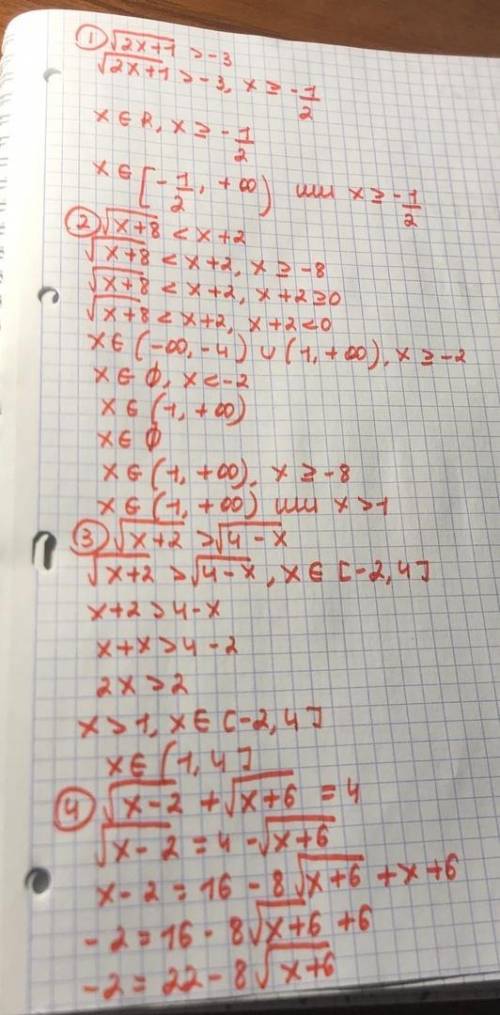 ① √2x+1 > -3
√2x+1 > -3, x ≥ -1/2
x ∈ R, x ≥ -1/2
x ∈ [-1/2, +∞) или x ≥ -1/2
② √x+8 < x+2
√x+8 < x+2, x ≥ -8
√x+8 < x+2, x+2≥0
√x+8 < x+2, x+2<0
x ∈ (-∞, -4) ∪ (1, +∞), x ≥ -2
x ∈ ∅, x < -2
x ∈ (1, +∞)
x ∈ ∅
x ∈ (1, +∞), x ≥ -8
x ∈ (1, +∞) или x > 1
③ √x+2 > √4-x
√x+2 > √4-x, x ∈ [-2, 4]
x+2 > 4-x
x+x > 4-2
2x > 2
x > 1, x ∈ [-2, 4]
x ∈ (1, 4]
④ √x-2 + √x+6 = 4
√x-2 = 4 - √x+6
x-2 = 16 - 8√x+6 + x+6
-2 = 16 - 8√x+6 + 6
-2 = 22 - 8√x+6